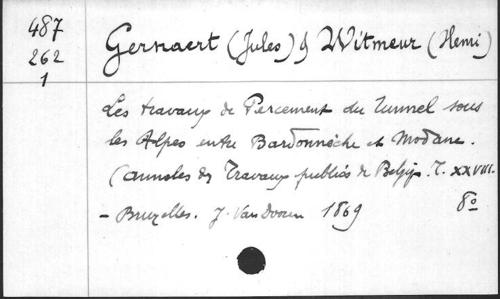 487
262
1
Gernaert (Jules) & Witmeur (Henri)
Les travaux de Percement du Tunnel sous
les Alpes entre Bardonnèche et Modane.
(annales des Travaux publics de Belgiq. T. XXVIII.
- Bruxelles. J. Van Dooren 1869 8o